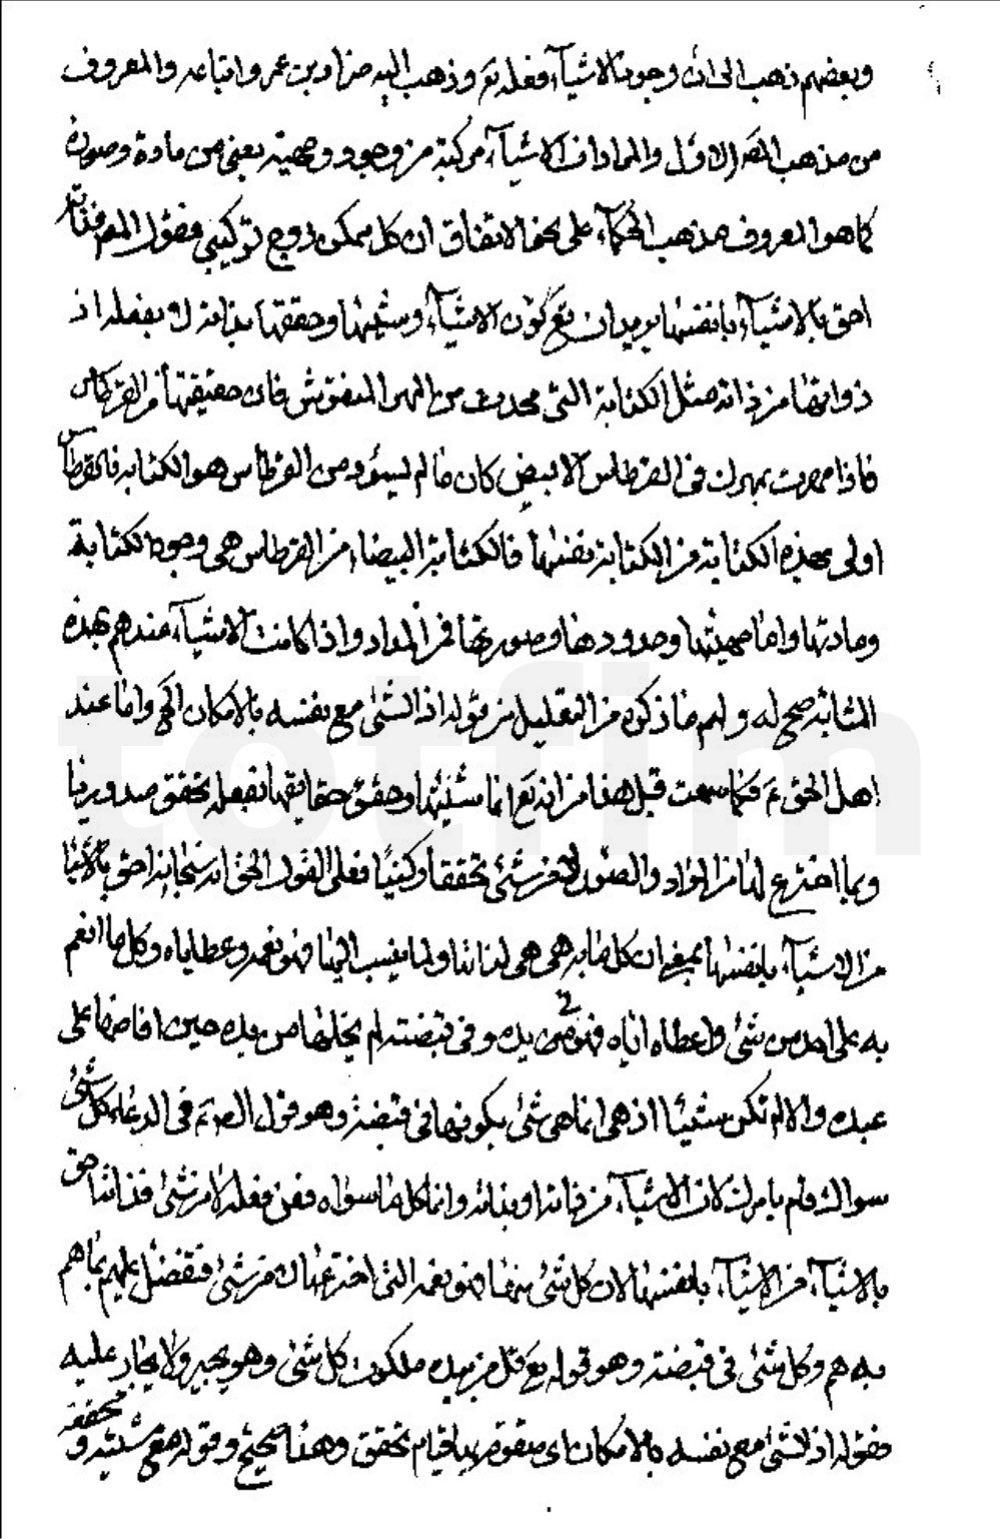 وبعضهم ذهب الى ان وجودنا الاشياء فعله تع وذهب اليه ضرار بن عمر واتباعه والمعروف
من مذهب المص الاول والمراد ان الاشياء مركبة من وجود ومهية يعنى من مادة وصورة
كما هو المعروف من مذهب الحكماء على نحو الاتفاق ان كل ممكن زوج تركيبي فقول المص فذاته
احق بالاشياء بانفسها يريد ان تع كون الاشياء وشيئها وحققها بذاته لا بفعله اذ
ذواتها من ذاته مثل الكتابة التى تحدث من المهر المنقوش فان حقيقتها من القرطاس
فاذا مهرت بمهرك فى القرطاس الابيض كان ما لم يسود من القرطاس هو الكتابه فالقرطاس
اولى بهذه الكتابة من الكتابة بنفسها فالكتابة البيضاء من القرطاس هى وجود الكتابة
ومادتها واما مهيتها وحدودها وصورتها فمن المداد واذا كانت الاشياء عندهم بهذه
المثابة صح له ولهم ما ذكره من التعليل من قوله اذ الشئ مع نفسه بالامكان الخ واما عند
اهل الحق ع فكما سمعت قبل هذا من انه تع انما شيئها وحقق حقايقها بفعله تحقق صدوريا
وبما اخترع لها من المواد والصور لا من شئ تحققا ركنيا فعلى القول الحق انه سبحانه احق بالاشيا
من الاشياء بانفسها بمعنى ان كل ما به هى هى لذاتها ولما ينسب اليها فهو نعمه وعطاياه وكل ما انعم
به على احد من شئ واعطاه اياه فهو فى يده وفى قبضته لم يخلها من يده حين افاضها على
عبده والا لم تكن شيئا اذ هى انما هى شئ بكونها فى قبضته وهو قول الص ع فى الدعاء كل شئ
سواك قام بامرك لان الاشياء من ذاته او بذاته وانما كل ما سواه فمن فعله لا من شئ فذاته احق
بالاشياء من الاشياء بانفسها لان كل شئ منها فهو نعمه التى اخترعها لا من شئ فتفضل عليهم بما هم
به هم وكل شئ فى قبضته وهو قوله تع قل من بيده ملكوت كل شئ وهو يجير ولا يجار عليه
فقوله اذ الشئ مع نفسه بالامكان اى متقوم بها قيام تحقق وهذا صحيح وقوله مع مشيئه ومحققه